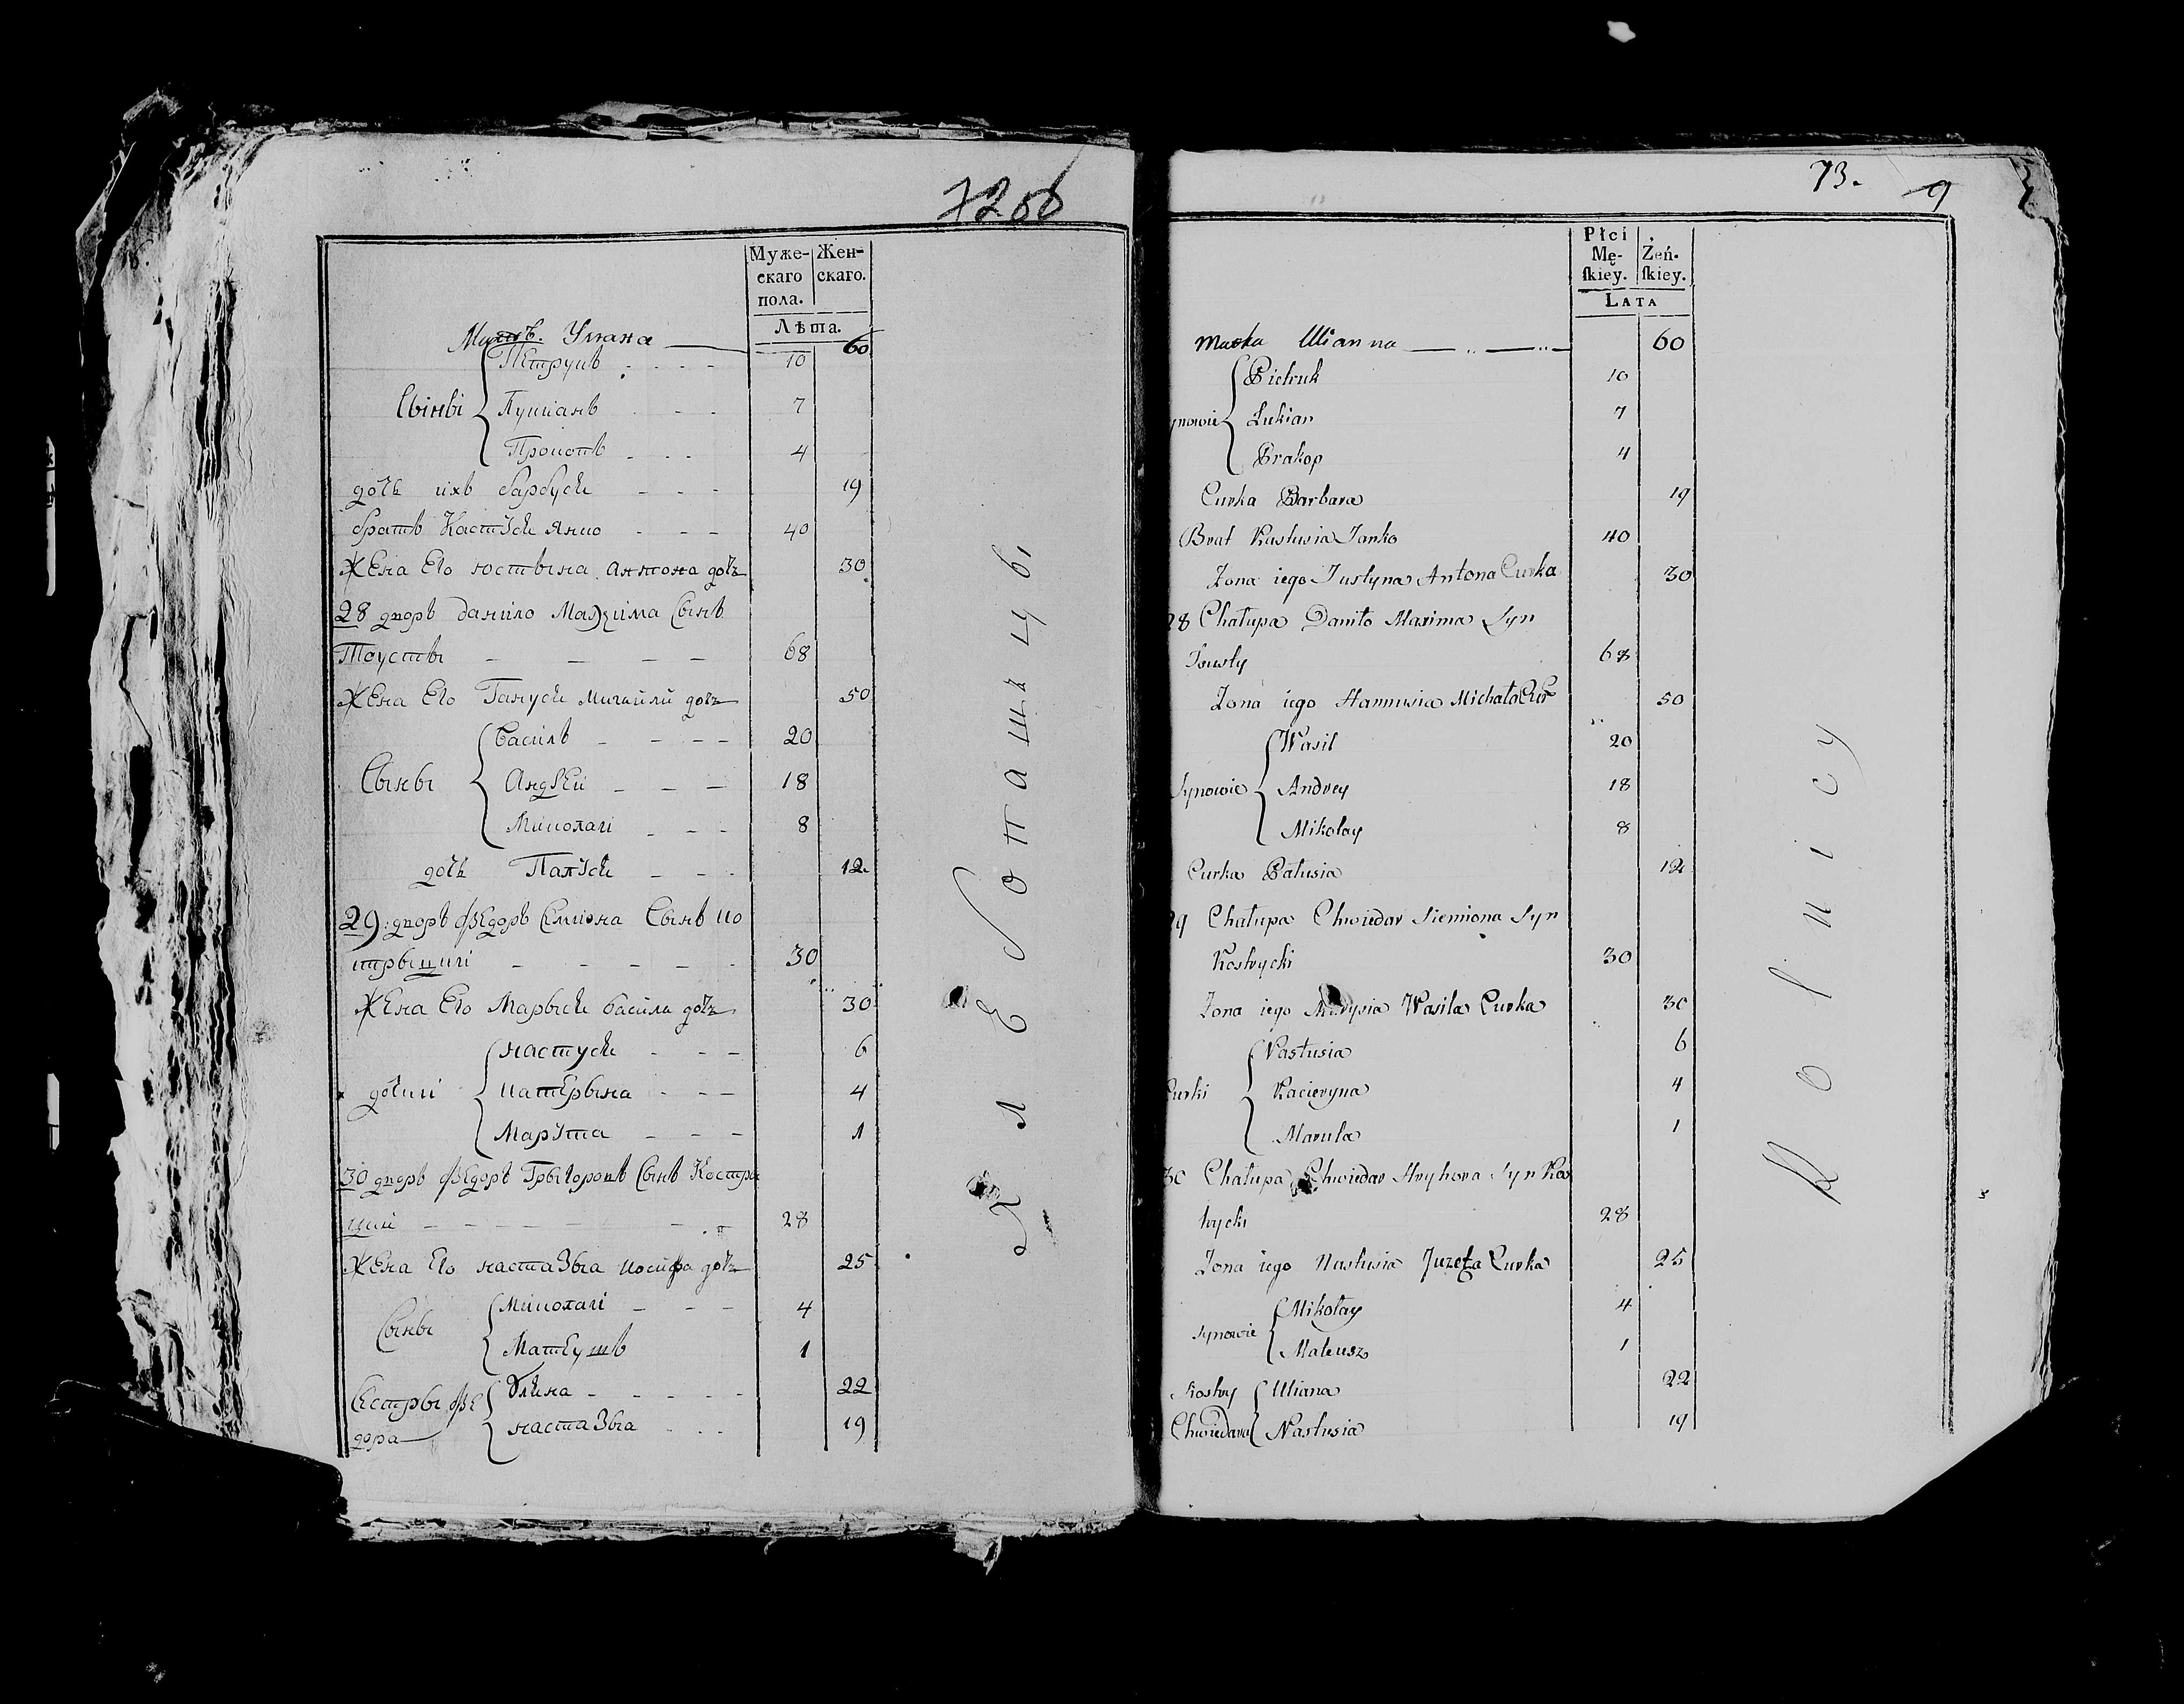 72 об
Муже-
скаго
пола.
Жен-
скаго.
Лѣта.
Мать Уляна — 60
Сыны
Петрукъ - - - - 10
Лукіанъ - - - 7
Прокопъ - - - 4
дочь ихъ барбуся - - - 19
братъ Кастуся Янко - - - 40
Жена Его юстына Антона дочь 30
28 дворъ данило Маѯима Сынъ
Тоусты - - - - 68
Жена Его Гануся Михайли дочь 50
Сыны
Василь - - - - 20
Андрей - - - 18
Миколай - - - 8
дочь Палуся - - - 12
29: дворъ ѳедоръ Семиона Сынъ Ко
стрыцкій - - - - - 30
Жена Его Марыся василя дочь 30
дочки
настуся - - - 6
катерына - - - 4
Марута - - - 1
30 дворъ ѳедоръ Грыгоровъ Сынъ Костры
цкій - - - - - 28
Жена Его настазыа Иосифа дочь 25
Сыны
Миколай - - - 4
Матеушъ 1
Сестры ѳе
дора
Уляна - - - - - 22
настазыа - - - 19
Хлебопашцы
73.
9
Płci
Mę-
ſkiey.
Żeń-
ſkiey.
LATA
Matka Ulianna 60
ynowie
Pietruk 10
Łukian 7
Prakop 4
Curka Barbara 19
Brat Kastusia Janko 40
Zona iego Justyna Antona Curka 30
28 Chałupa Daniło Maxima Syn
Tousty 68
Zona iego Hannusia Michała Cur 50
Synowie
Wasil 20
Andrey 18
Mikołay 8
Curka Pałusia 12
29 Chałupa Chwiedar Siemiona Syn
Kostrycki 30
Zona iego Marysia Wasila Curka 30
Curki
Nastusia 6
Kacieryna 4
Maruta 1
30 Chałupa Chwiedar Hryhora Syn Kos
trycki 28
Zona iego Nastusia Juzefa Curka 25
Synowie
Mikołay 4
Mateusz 1
Siostry
Chwiedara
Uliana 22
Nastusia 19
Rolnicy